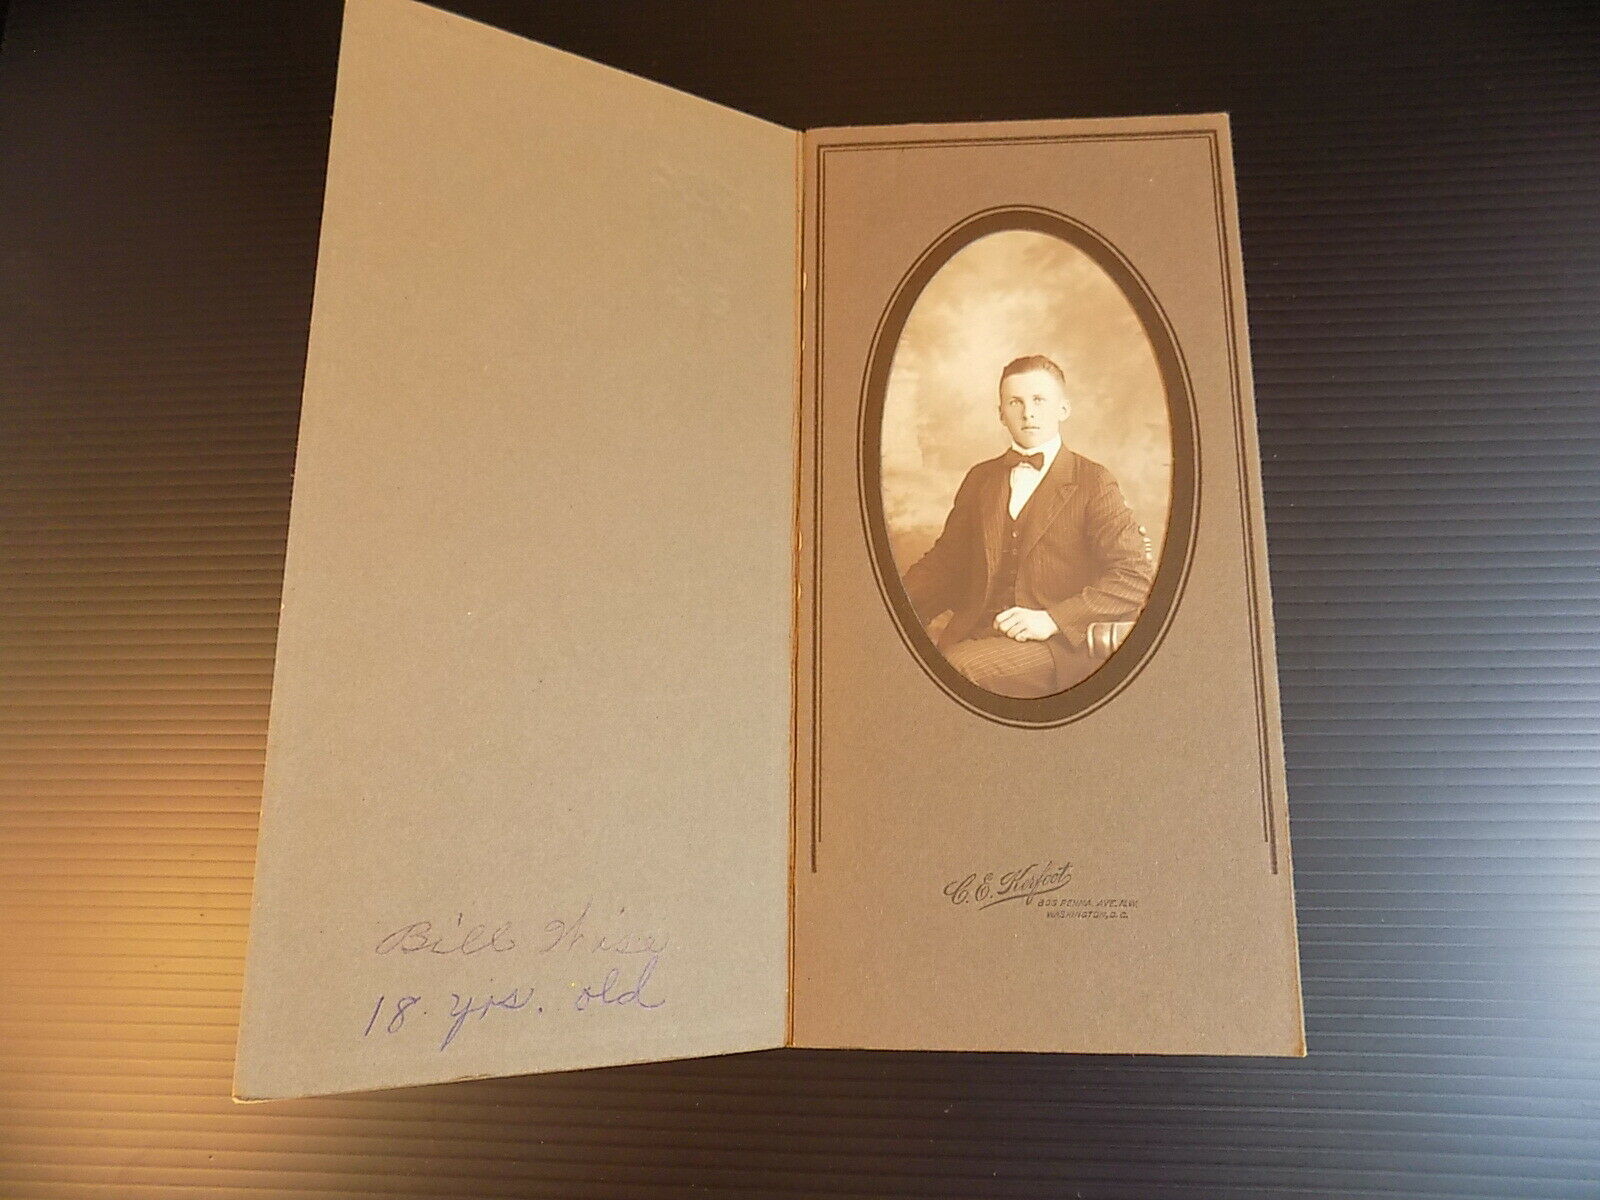 Bill Wise
18 yrs. old
C. E. Kerfoot
805 PENNA. AVE. N.W.
WASHINGTON, D. C.